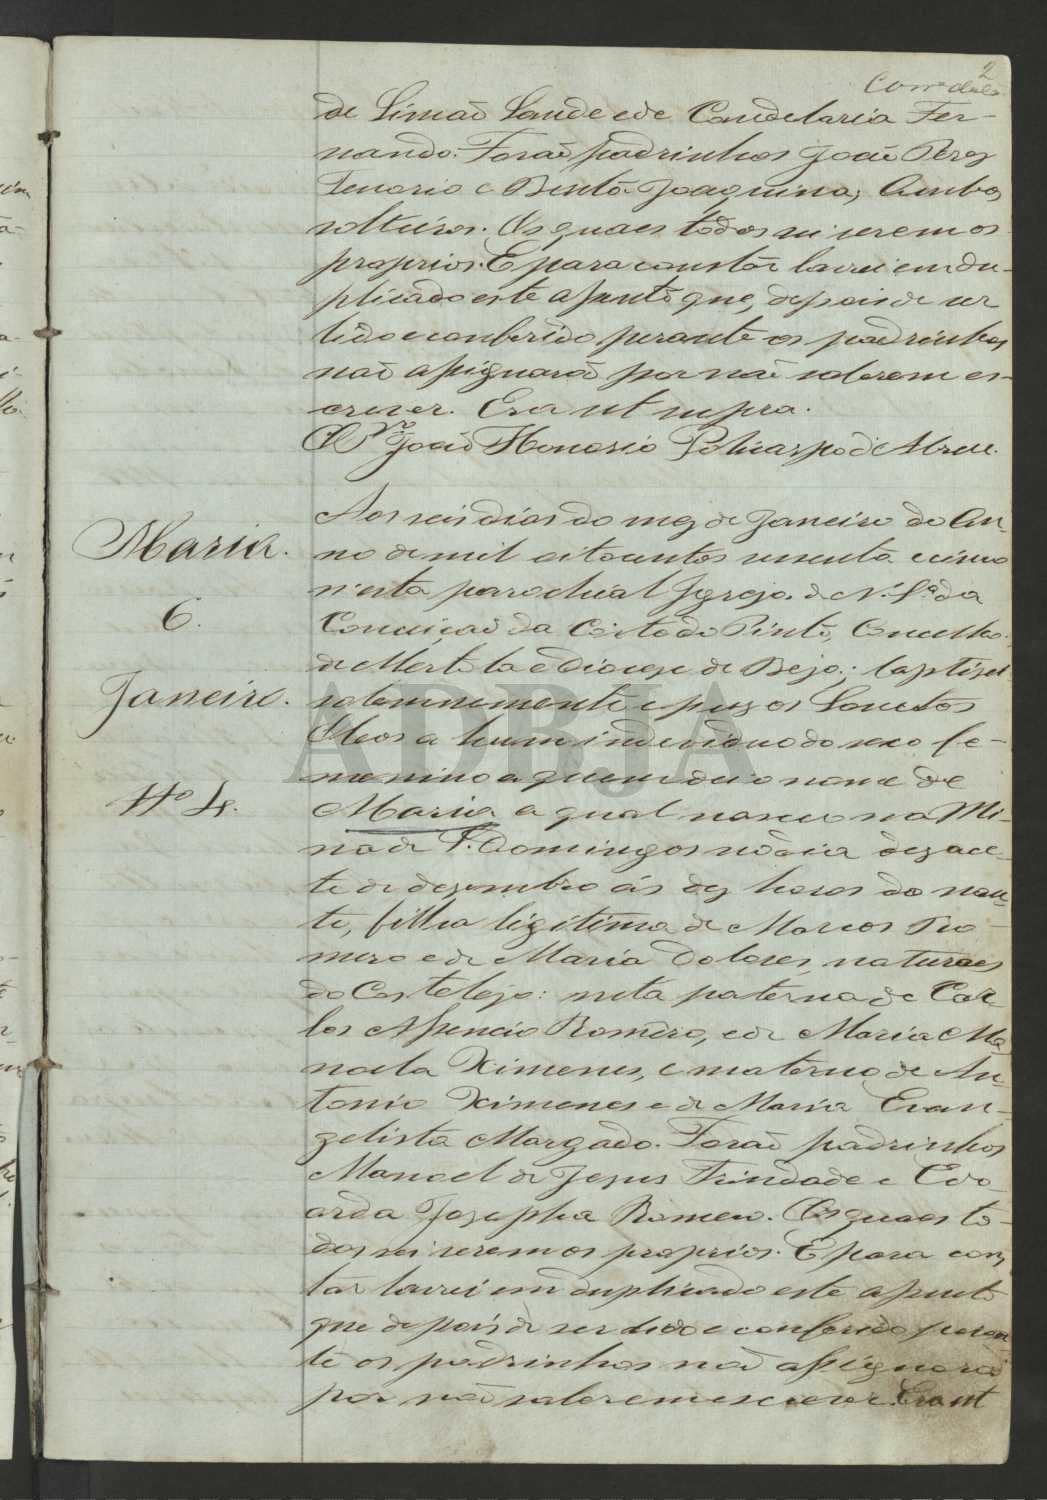 2
de Simaõ Saude e de Candelaria Fer-
nando. Foraõ padrinhos Joaõ Peres
Tenorio e Benta Joaquina, Ambos
solteiros. Os quaes todos sei serem os
proprios. E para constar lavrei em du-
plicado este assento que, depois de ser
lido e conferido perante os padrinhos
naõ assignaraõ por naõ saberem es-
crever. Era ut supra.
O Pr. Joaõ Honorio Policarpo d'Abreu.
Aos seis dias do mez de Janeiro do An-
no de mil oitocentos sesenta e cinco
n'esta parochial Igreja de N. Sª. da
Conceiçaõ da Corte do Pinto, Concelho
de Mertola e Diocese de Beja; baptisei
solemnemente e puz os Sanctos
Oleos a hum individuo do sexo fe-
menino a quem dei o nome de
Maria a qual nasceu na Mi-
na de S. Domingos no dia dezace-
te de dezembro ás dez horas da nou-
te, filha ligitima de Marcos Ro-
mero e de Maria Dolores, naturaes
do Castelejo: neta paterna de Car-
los Assencio Romero, e de Maria Ma-
noela Ximenes, e materna de An-
tonio Ximenes e de Maria Evan-
gelista Morgado. Foraõ padrinhos
Manoel de Jesus Trindade e Edo-
arda Jozepha Romero. Os quaes to-
dos sei serem os proprios. E para cons-
tar lavrei em duplicado este assento
que depois de ser lido e conferido peran-
te os padrinhos naõ assignaraõ
por naõ saberem escrever. Era ut
Maria.
6.
Janeiro.
Nº 4.
ADBJA